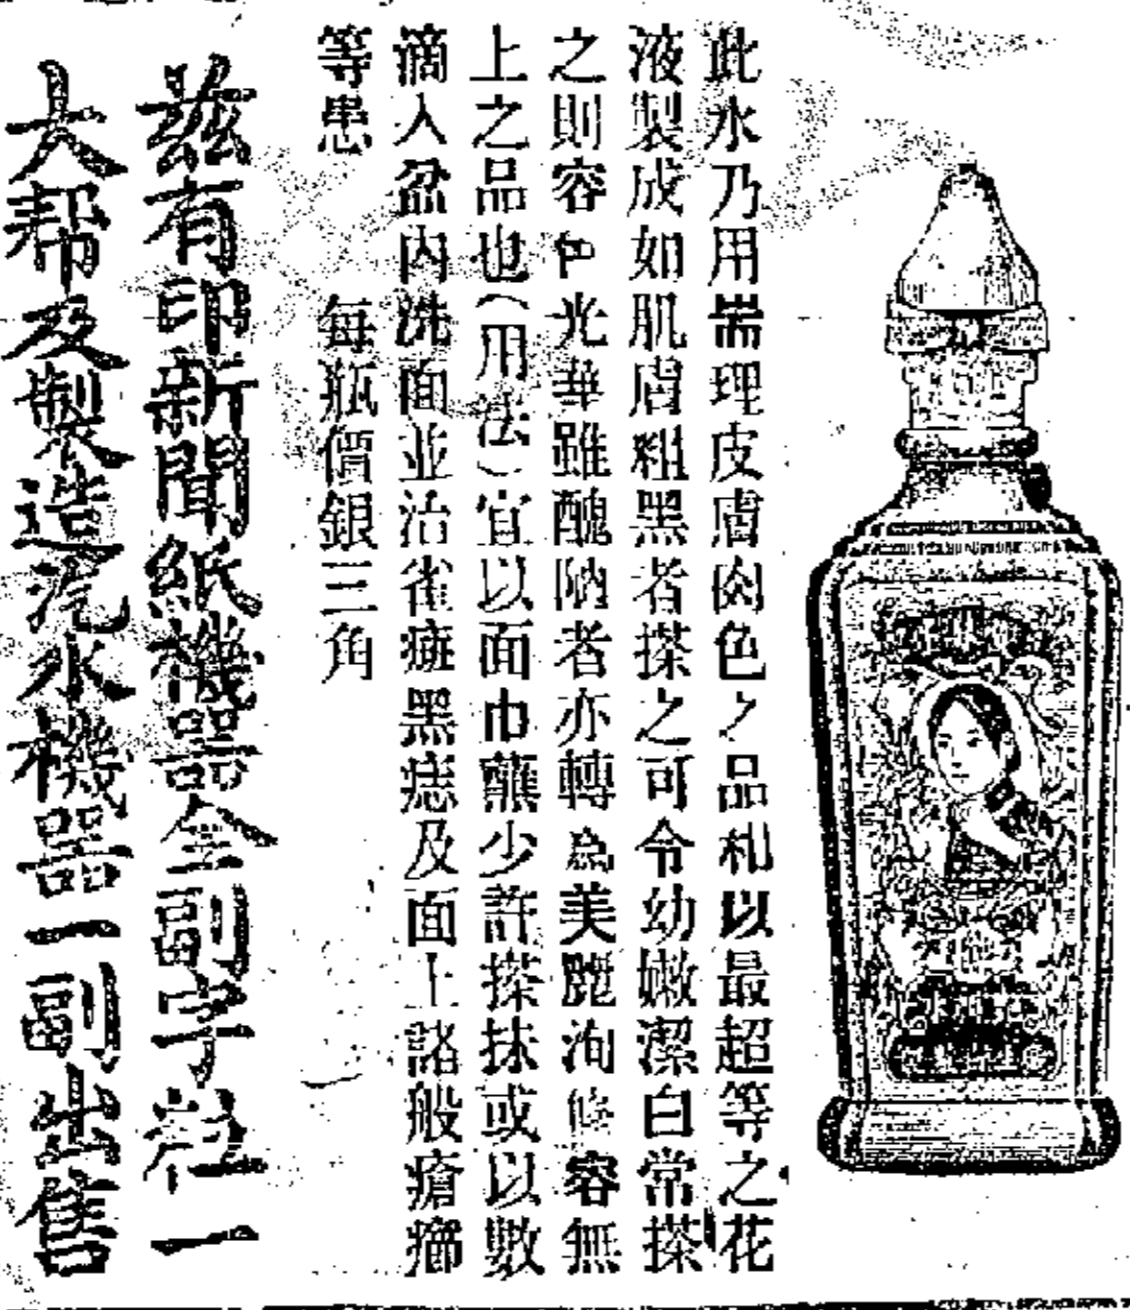 此水乃用耑理皮膚肉色〻品和以最超等之花
液製成如肌膚粗黑者搽之可令幼嫩潔白常搽
之則容色光華雖醜陋者亦轉為美麗洵修容無
上之品也（用法）宜以面巾蘸少許搽抹或以數
滴入盆內洗面並治雀斑黑痣及面上諸般瘡癤
等患　　每瓶價銀三角
茲有印新聞紙機器全副字粒一
大帮及製造汽水機器一副出售